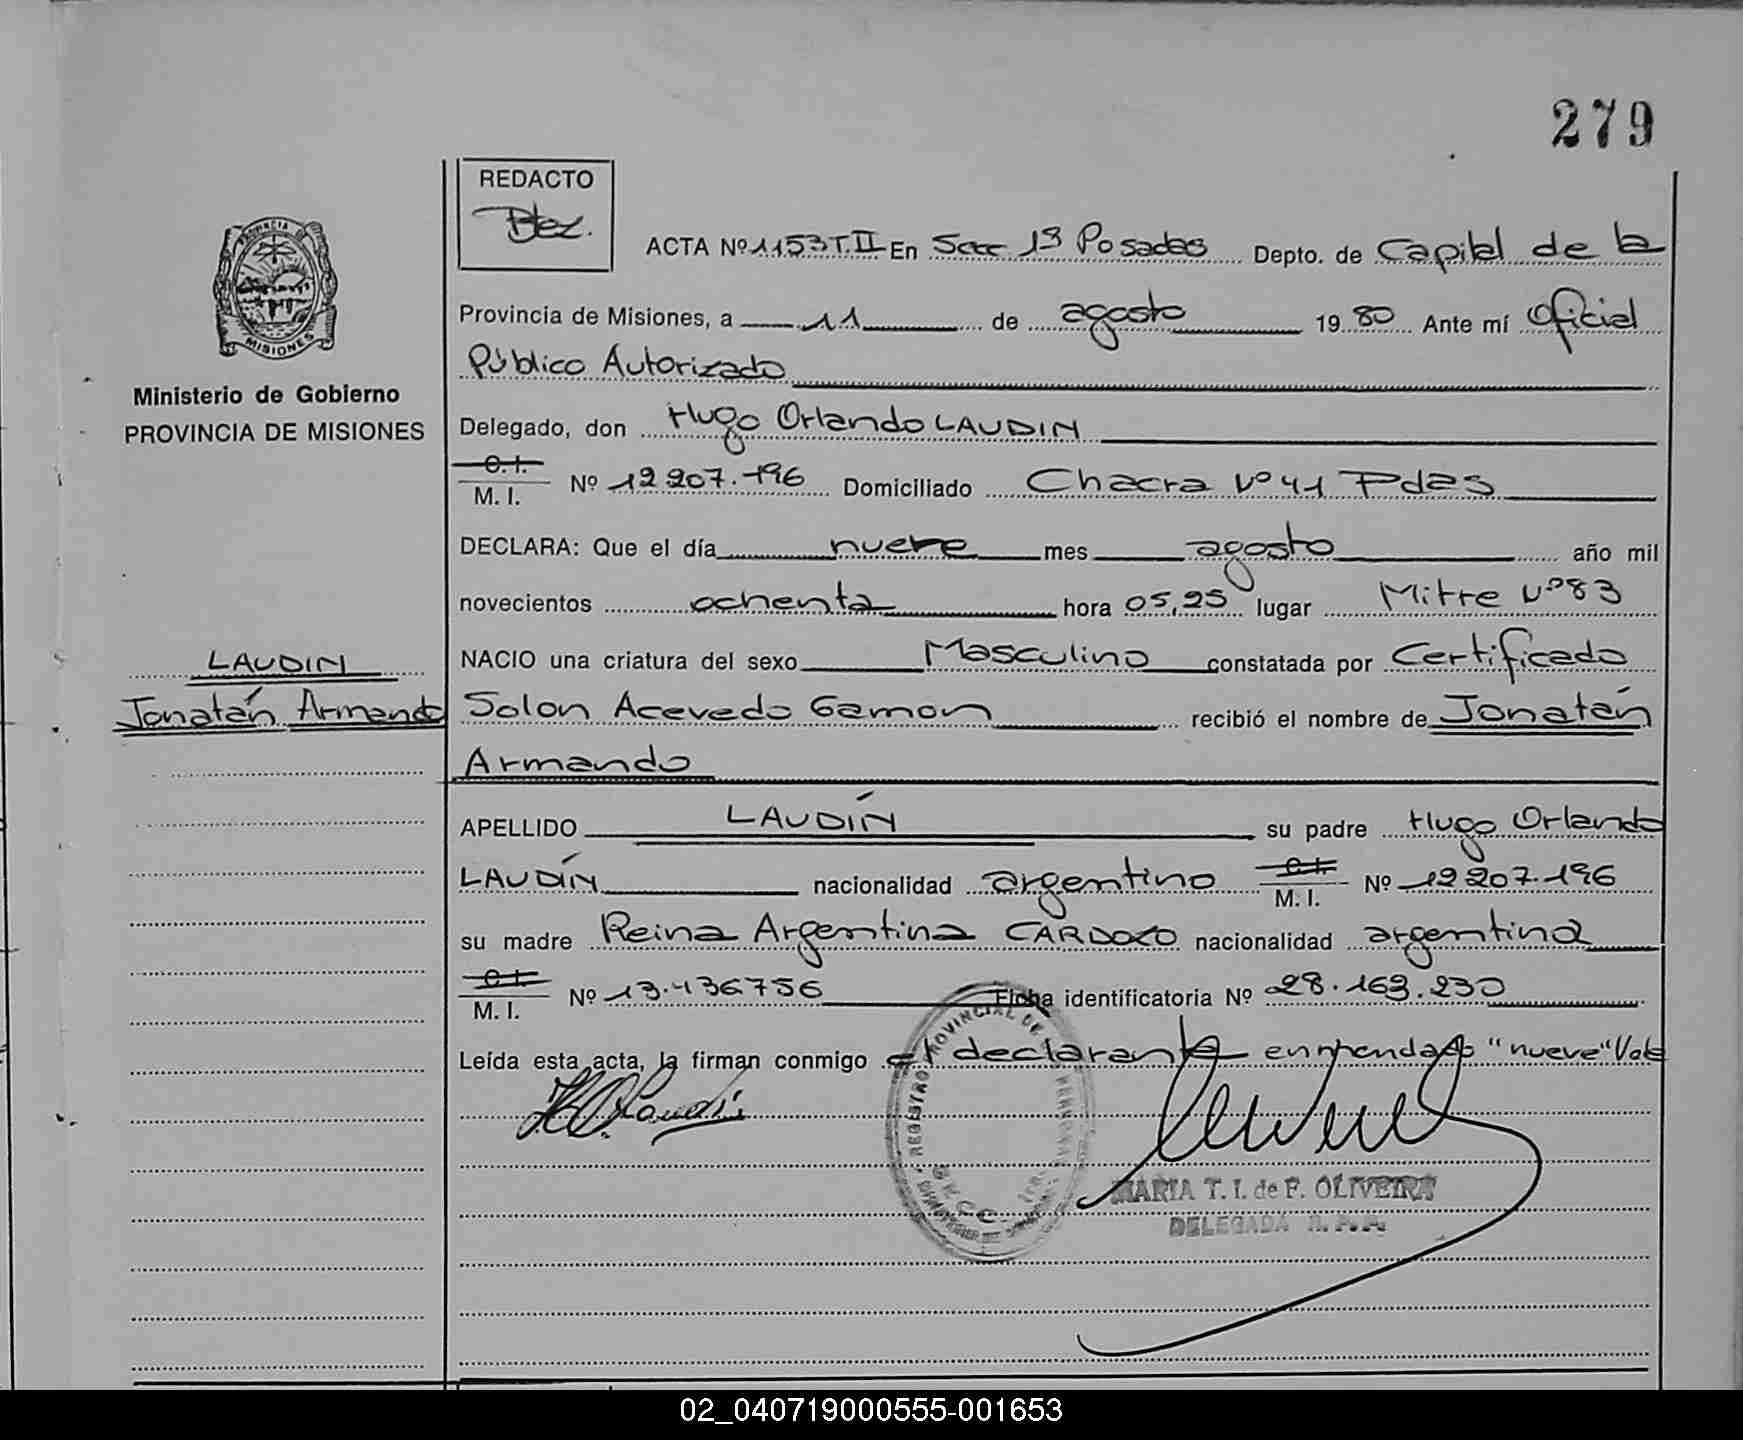 279
REDACTO
Btez.
ACTA Nº 1153 T. II En Secc 1ª Posadas Depto. de Capital de la
PROVINCIA DE
MISIONES
Provincia de Misiones, a 11 de agosto 1980 Ante mí Oficial
Público Autorizado
Ministerio de Gobierno
PROVINCIA DE MISIONES
Delegado, don Hugo Orlando LAUDIN
C. I.
M. I. Nº 12 207.196 Domiciliado Chacra Nº 41 Pdas
DECLARA: Que el día nueve mes agosto año mil
novecientos ochenta hora 05,25 lugar Mitre Nº 83
NACIO una criatura del sexo Masculino constatada por Certificado
LAUDIN
Jonatán Armando
Solon Acevedo Gamon recibió el nombre de Jonatán
Armando
APELLIDO LAUDÍN su padre Hugo Orlando
LAUDÍN nacionalidad argentino C. I. M. I. Nº 12 207.196
su madre Reina Argentina CARDOZO nacionalidad argentina
C. I.
M. I. Nº 13.436756 Ficha identificatoria Nº 28.163.230
Leída esta acta, la firman conmigo el declarante enmendado "nueve" Vale
H O Laudin
REGISTRO PROVINCIAL DE
MARIA T. I. de F. OLIVEIRA
DELEGADA R. P. P.
02_040719000555-001653